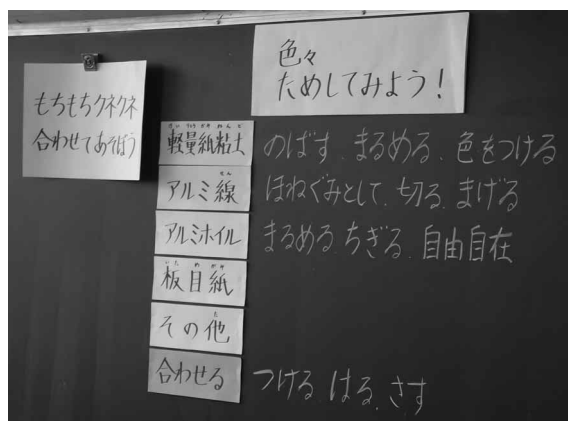 もちもちクネクネ
合わせてあそぼう
色々
ためしてみよう!
けいりょうかみねんど
軽量紙粘土 のばす、まるめる、色をつける
せん
アルミ線 ほねぐみとして、切る、まげる
アルミホイル まるめる、ちぎる、自由自在
いためがみ
板目紙
た
その他
合わせる つける、はる、さす